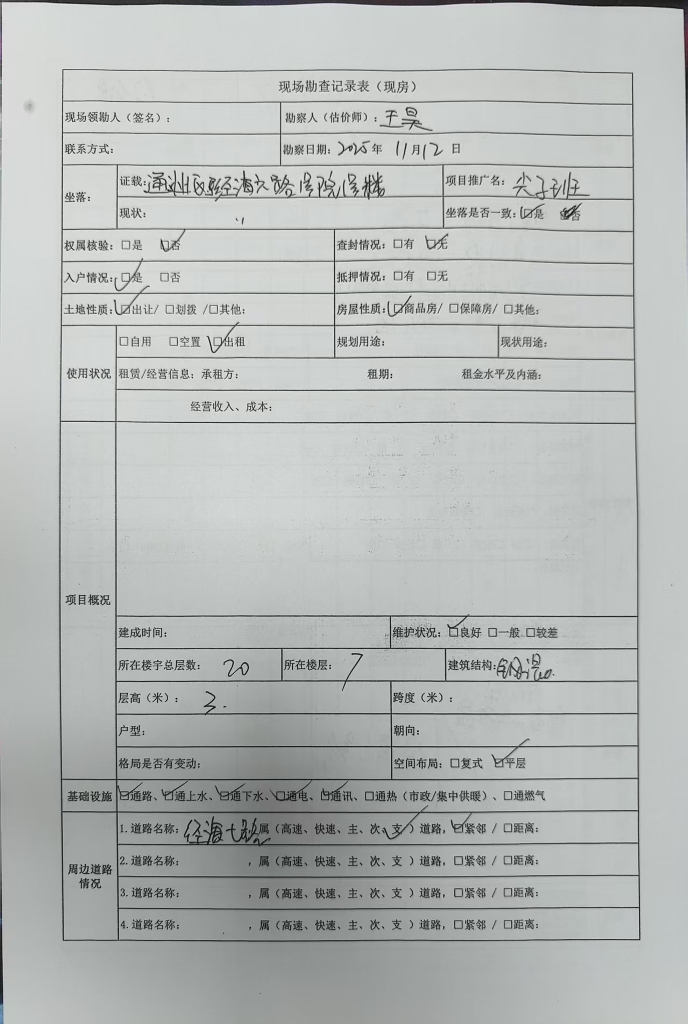 现场勘查记录表（现房）
现场领勘人（签名）： 勘察人（估价师）：王昊
联系方式： 勘察日期：2025年 11月12日
坐落： 证载：通州区经海六路 号院 号楼 项目推广名：尖子班
现状：〃 坐落是否一致：☑是 □否
权属核验：□是 ☑否 查封情况：□有 ☑无
入户情况：☑是 □否 抵押情况：□有 □无
土地性质：☑出让/ □划拨 /□其他： 房屋性质：☑商品房/ □保障房/ □其他：
使用状况 □自用 □空置 ☑出租 规划用途： 现状用途：
租赁/经营信息：承租方： 租期： 租金水平及内涵：
经营收入、成本：
项目概况
建成时间： 维护状况：☑良好 □一般 □较差
所在楼宇总层数：20 所在楼层：7 建筑结构：钢混
层高（米）：3. 跨度（米）：
户型： 朝向：
格局是否有变动： 空间布局：□复式 ☑平层
基础设施 ☑通路、☑通上水、☑通下水、☑通电、☑通讯、□通热（市政/集中供暖）、□通燃气
周边道路情况 1.道路名称：经海七路，属（高速、快速、主、次、支✓）道路，☑紧邻 / □距离：
2.道路名称： ，属（高速、快速、主、次、支 ）道路，□紧邻 / □距离：
3.道路名称： ，属（高速、快速、主、次、支 ）道路，□紧邻 / □距离：
4.道路名称： ，属（高速、快速、主、次、支 ）道路，□紧邻 / □距离：